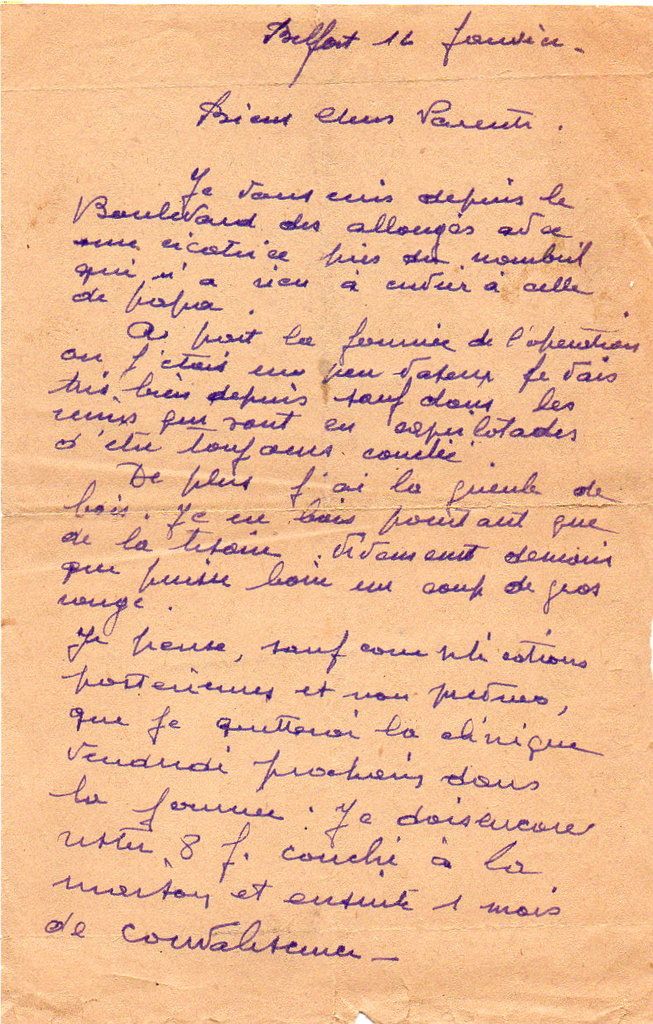 Belfort 16 Janvier -
Biens Chers Parents.
Je vous écris depuis le
Boulevard des allongés avec
une cicatrice près du nombril
qui n'a rien à envier à celle
de papa.
A part la journée de l'opération
où j'étais un peu vaseux je vais
très bien depuis sauf dans les
reins qui sont en capilotades
d'être toujours couché.
De plus j'ai la gueule de
bois. Je ne bois pourtant que
de la tisane. Vivement demain
que puisse boire un coup de gros
rouge.
Je pense, sauf complications
postérieures et non prévues,
que je quitterai la clinique
Vendredi prochain dans
la journée. Je dois encore
rester 8 j. couché à la
maison et ensuite 1 mois
de convalescence -